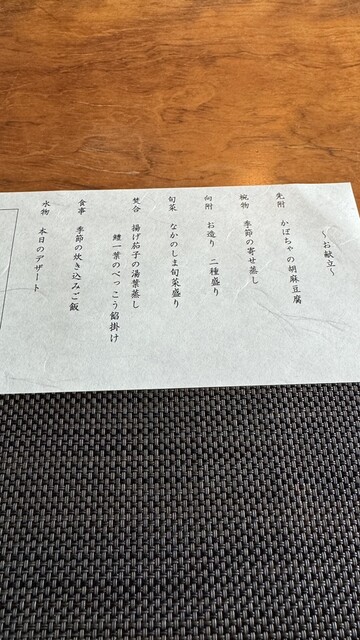 ～お献立～
先附 かぼちゃの胡麻豆腐
椀物 季節の寄せ蒸し
向附 お造り 二種盛り
旬菜 なかのしま旬菜盛り
焚合 揚げ茄子の湯葉蒸し
鱧一葉のべっこう餡掛け
食事 季節の炊き込みご飯
水物 本日のデザート